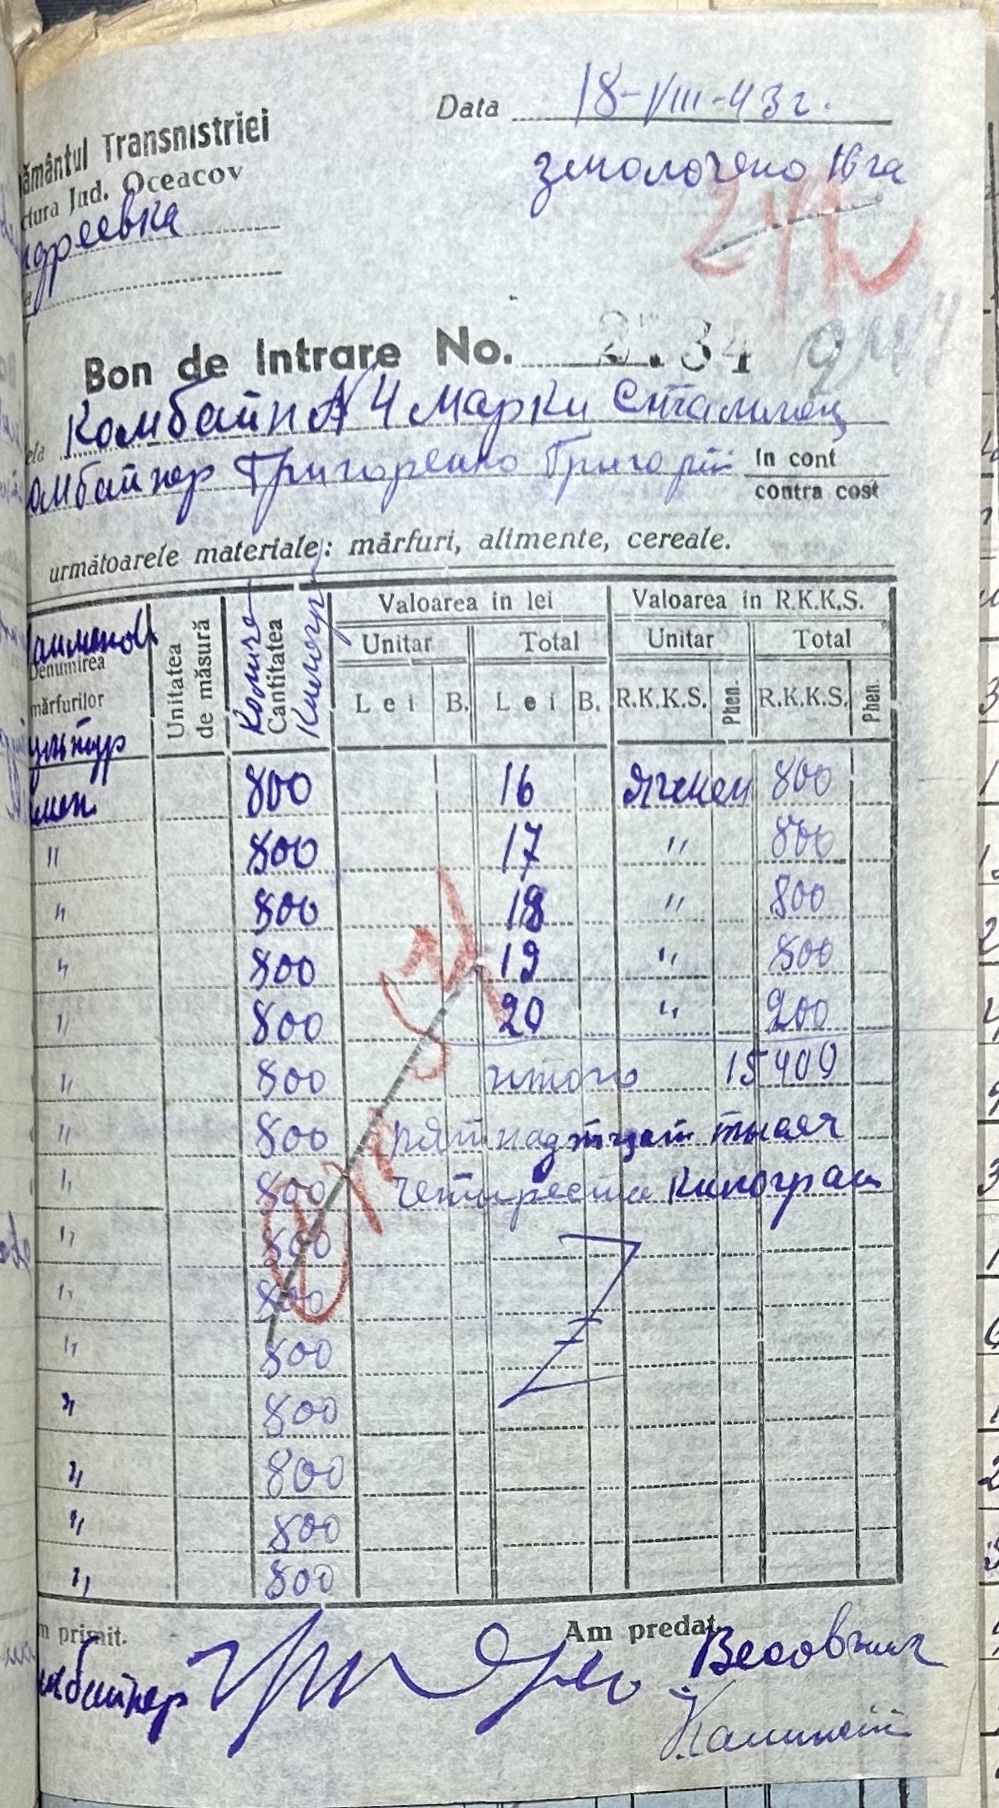 ământul Transnistriei
ctura Jud. Oceacov
ндреевка
Data 18-VIII-43 г.
змолочено 16 га
Bon de Intrare No. 2734
Комбайн № 4 марки Сталинец
омбайнер Григоренко Григорий
In cont
contra cost
următoarele materiale: mărfuri, alimente, cereale.
Denumirea mărfurilor
Unitatea de măsură
Cantitatea
Количе Килогр
Valoarea in lei
Valoarea in R.K.K.S.
Unitar Total Unitar Total
Lei B. Lei B. R.K.K.S. Phen. R.K.K.S. Phen.
культур
чмен 800 16 Ячмен 800
" 800 17 " 800
" 800 18 " 800
" 800 19 " 800
" 800 20 " 200
" 800 итого 15400
" 800 пятнадтцат тысяч
" 800 четыреста килограм
" 800
" 800
" 800
" 800
" 800
" 800
" 800
m primit.
Am predat,
мбайнер
Весовчик